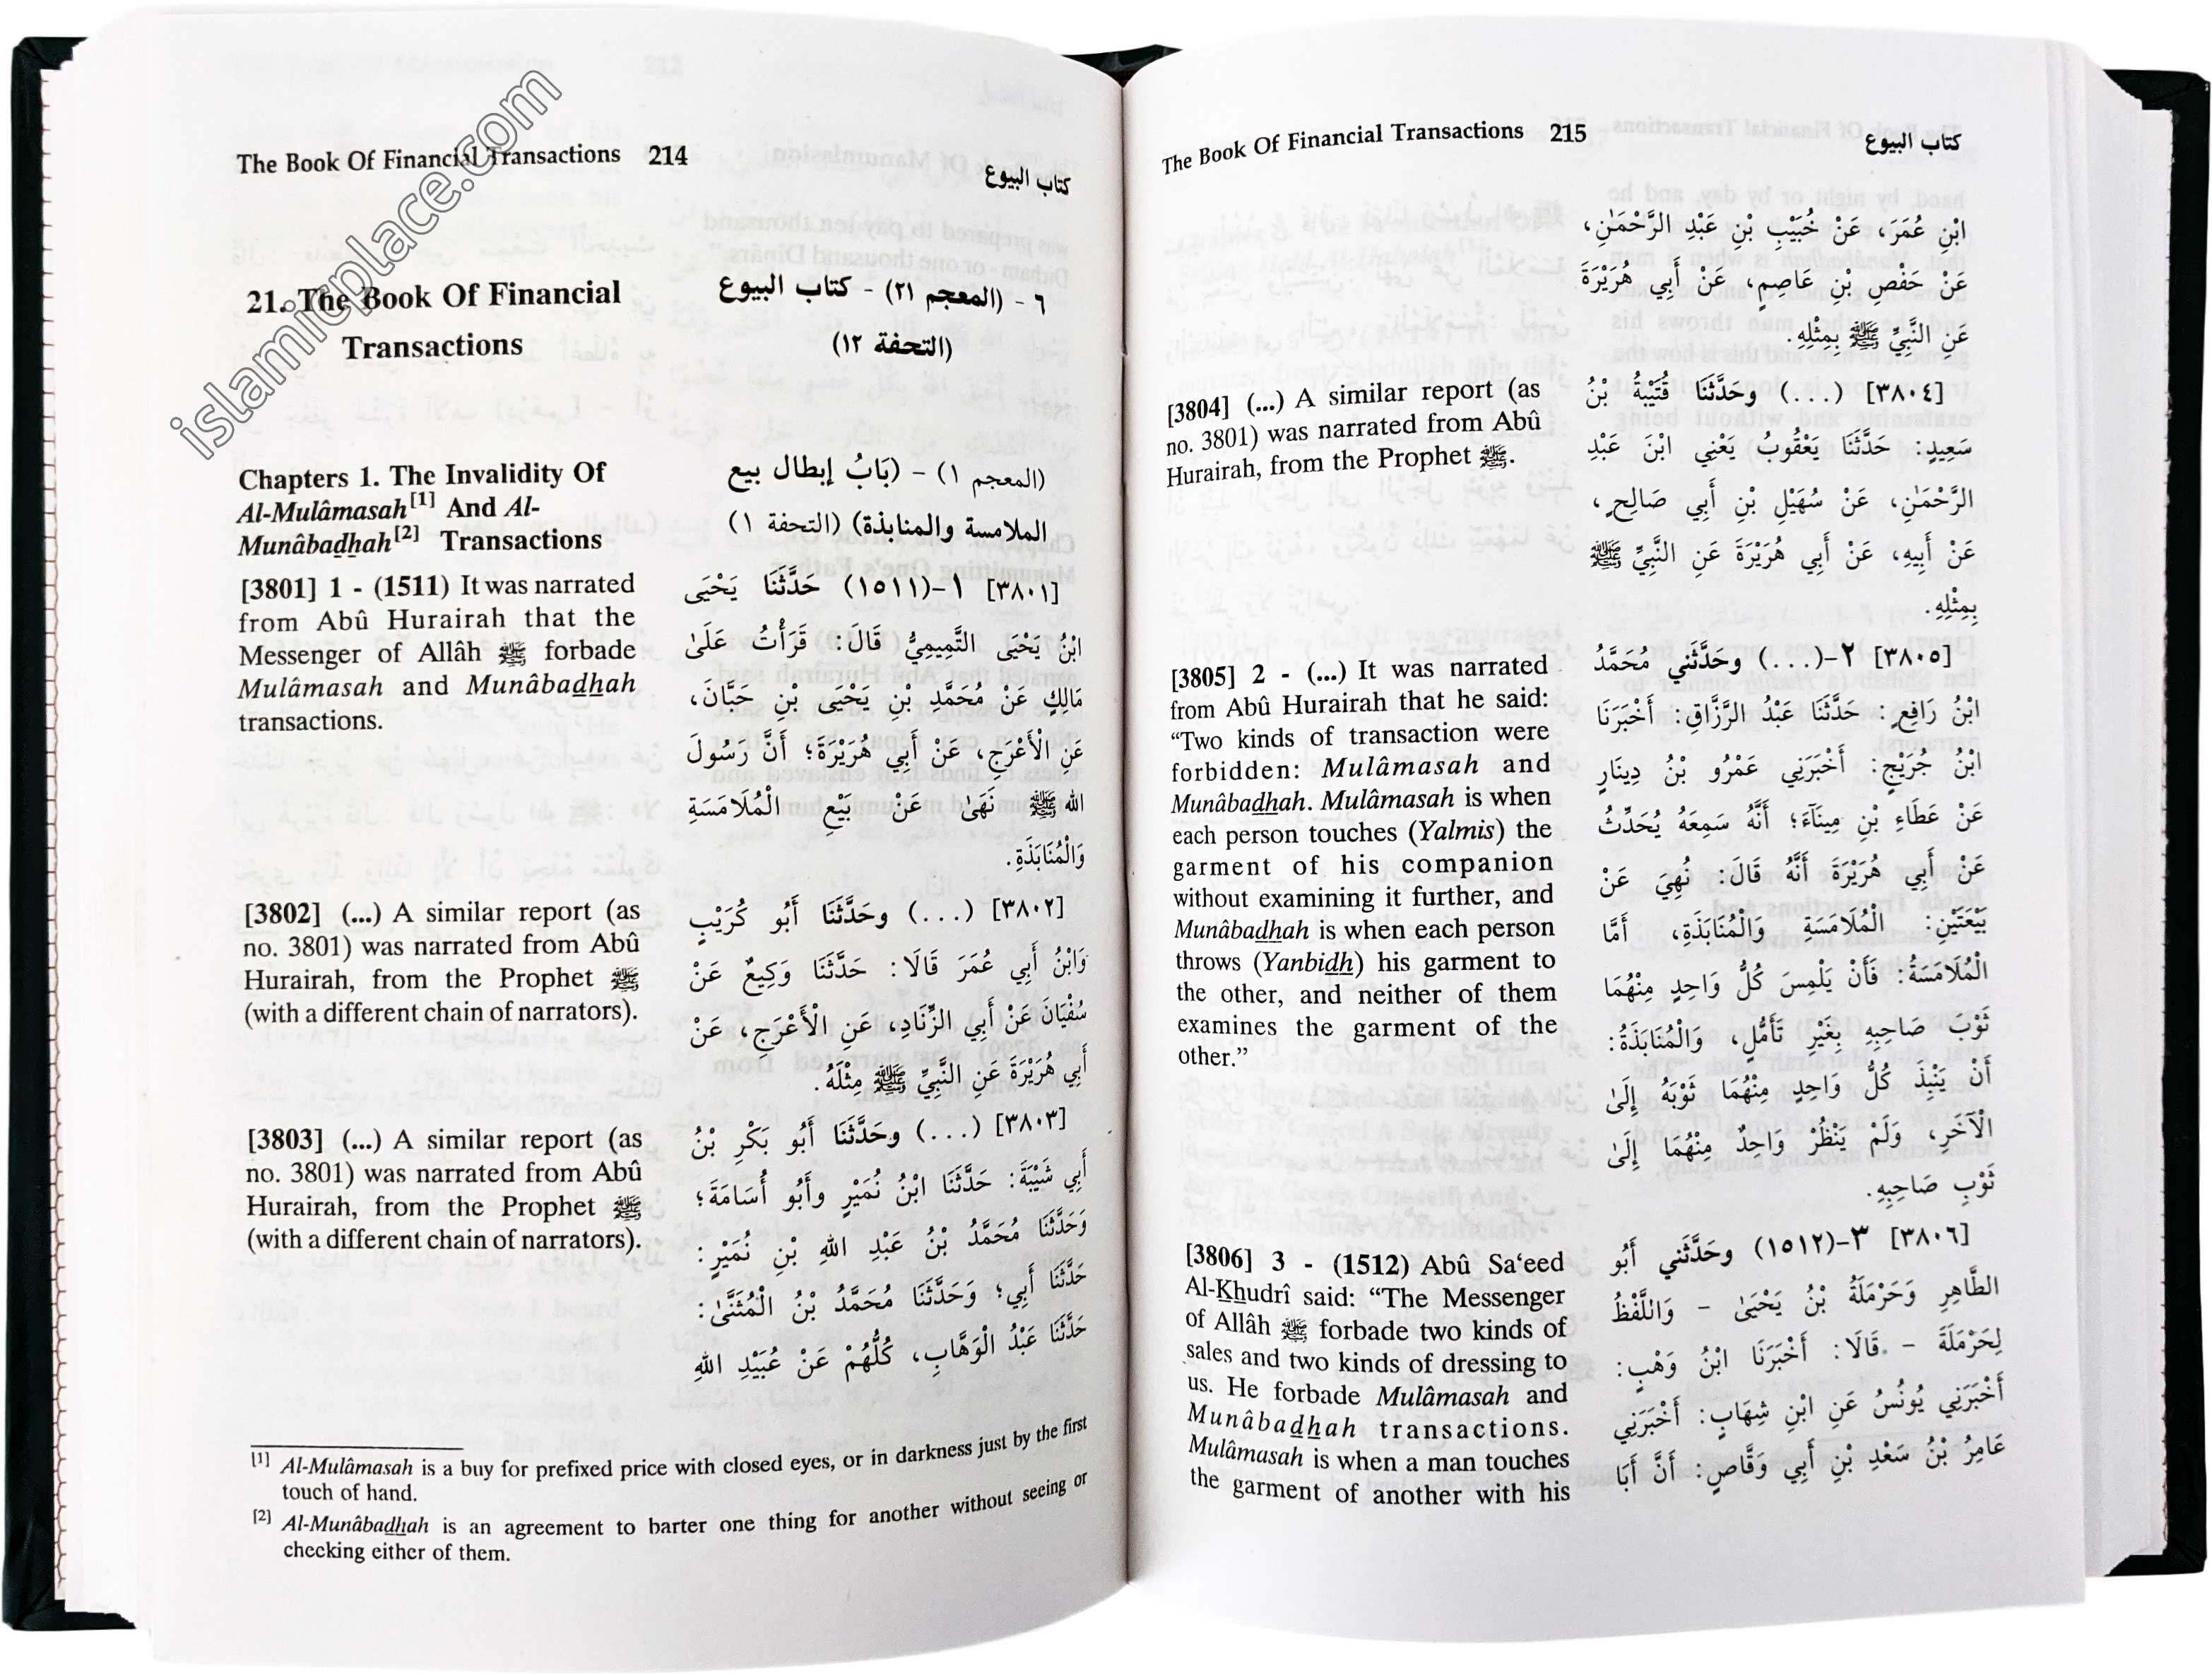 islamicplace.com
The Book Of Financial Transactions 214
كتاب البيوع
21. The Book Of Financial
Transactions
٦ - (المعجم ٢١) - كتاب البيوع
(التحفة ١٢)
Chapters 1. The Invalidity Of
Al-Mulâmasah[1] And Al-
Munâbadhah[2] Transactions
(المعجم ١) - (بَابُ إبطال بيع
الملامسة والمنابذة) (التحفة ١)
[3801] 1 - (1511) It was narrated
from Abû Hurairah that the
Messenger of Allâh ﷺ forbade
Mulâmasah and Munâbadhah
transactions.
[٣٨٠١] ١-(١٥١١) حَدَّثَنَا يَحْيَى
ابْنُ يَحْيَى التَّمِيمِيُّ قَالَ: قَرَأْتُ عَلَىٰ
مَالِكٍ عَنْ مُحَمَّدِ بْنِ يَحْيَى بْنِ حَبَّانَ،
عَنِ الْأَعْرَجِ، عَنْ أَبِي هُرَيْرَةَ؛ أَنَّ رَسُولَ
الله ﷺ نَهَىٰ عَنْ بَيْعِ الْمُلَامَسَةِ
وَالْمُنَابَذَةِ.
[3802] (...) A similar report (as
no. 3801) was narrated from Abû
Hurairah, from the Prophet ﷺ
(with a different chain of narrators).
[٣٨٠٢] (...) وحَدَّثَنَا أَبُو كُرَيْبٍ
وَابْنُ أَبِي عُمَرَ قَالَا: حَدَّثَنَا وَكِيعٌ عَنْ
سُفْيَانَ عَنْ أَبِي الزِّنَادِ، عَنِ الْأَعْرَجِ، عَنْ
أَبِي هُرَيْرَةَ عَنِ النَّبِيِّ ﷺ مِثْلَهُ.
[3803] (...) A similar report (as
no. 3801) was narrated from Abû
Hurairah, from the Prophet ﷺ
(with a different chain of narrators).
[٣٨٠٣] (...) وحَدَّثَنَا أَبُو بَكْرِ بْنُ
أَبِي شَيْبَةَ: حَدَّثَنَا ابْنُ نُمَيْرٍ وأَبُو أُسَامَةَ؛
وَحَدَّثَنَا مُحَمَّدُ بْنُ عَبْدِ اللهِ بْنِ نُمَيْرٍ:
حَدَّثَنَا أَبِي؛ وَحَدَّثَنَا مُحَمَّدُ بْنُ الْمُثَنَّىٰ:
حَدَّثَنَا عَبْدُ الْوَهَّابِ، كُلُّهُمْ عَنْ عُبَيْدِ اللهِ
[1] Al-Mulâmasah is a buy for prefixed price with closed eyes, or in darkness just by the first
touch of hand.
[2] Al-Munâbadhah is an agreement to barter one thing for another without seeing or
checking either of them.
The Book Of Financial Transactions 215
كتاب البيوع
ابْنِ عُمَرَ، عَنْ خُبَيْبِ بْنِ عَبْدِ الرَّحْمَٰنِ،
عَنْ حَفْصِ بْنِ عَاصِمٍ، عَنْ أَبِي هُرَيْرَةَ
عَنِ النَّبِيِّ ﷺ بِمِثْلِهِ.
[3804] (...) A similar report (as
no. 3801) was narrated from Abû
Hurairah, from the Prophet ﷺ.
[٣٨٠٤] (...) وحَدَّثَنَا قُتَيْبَةُ بْنُ
سَعِيدٍ: حَدَّثَنَا يَعْقُوبُ يَعْنِي ابْنَ عَبْدِ
الرَّحْمَٰنِ، عَنْ سُهَيْلِ بْنِ أَبِي صَالِحٍ،
عَنْ أَبِيهِ، عَنْ أَبِي هُرَيْرَةَ عَنِ النَّبِيِّ ﷺ
بِمِثْلِهِ.
[3805] 2 - (...) It was narrated
from Abû Hurairah that he said:
“Two kinds of transaction were
forbidden: Mulâmasah and
Munâbadhah. Mulâmasah is when
each person touches (Yalmis) the
garment of his companion
without examining it further, and
Munâbadhah is when each person
throws (Yanbidh) his garment to
the other, and neither of them
examines the garment of the
other.”
[٣٨٠٥] ٢-(...) وحَدَّثَني مُحَمَّدُ
ابْنُ رَافِعٍ: حَدَّثَنَا عَبْدُ الرَّزَّاقِ: أَخْبَرَنَا
ابْنُ جُرَيْجٍ: أَخْبَرَنِي عَمْرُو بْنُ دِينَارٍ
عَنْ عَطَاءِ بْنِ مِينَآءَ؛ أَنَّهُ سَمِعَهُ يُحَدِّثُ
عَنْ أَبِي هُرَيْرَةَ أَنَّهُ قَالَ: نُهِيَ عَنْ
بَيْعَتَيْنِ: الْمُلَامَسَةِ وَالْمُنَابَذَةِ، أَمَّا
الْمُلَامَسَةُ: فَأَنْ يَلْمِسَ كُلُّ وَاحِدٍ مِنْهُمَا
ثَوْبَ صَاحِبِهِ بِغَيْرِ تَأَمُّلٍ، وَالْمُنَابَذَةُ:
أَنْ يَنْبِذَ كُلُّ وَاحِدٍ مِنْهُمَا ثَوْبَهُ إِلَىٰ
الْآخَرِ، وَلَمْ يَنْظُرْ وَاحِدٌ مِنْهُمَا إِلَىٰ
ثَوْبِ صَاحِبِهِ.
[3806] 3 - (1512) Abû Sa‘eed
Al-Khudrî said: “The Messenger
of Allâh ﷺ forbade two kinds of
sales and two kinds of dressing to
us. He forbade Mulâmasah and
Munâbadhah transactions.
Mulâmasah is when a man touches
the garment of another with his
[٣٨٠٦] ٣-(١٥١٢) وحَدَّثَني أَبُو
الطَّاهِرِ وَحَرْمَلَةُ بْنُ يَحْيَىٰ - وَاللَّفْظُ
لِحَرْمَلَةَ - قَالَا: أَخْبَرَنَا ابْنُ وَهْبٍ:
أَخْبَرَنِي يُونُسُ عَنِ ابْنِ شِهَابٍ: أَخْبَرَنِي
عَامِرُ بْنُ سَعْدِ بْنِ أَبِي وَقَّاصٍ: أَنَّ أَبَا